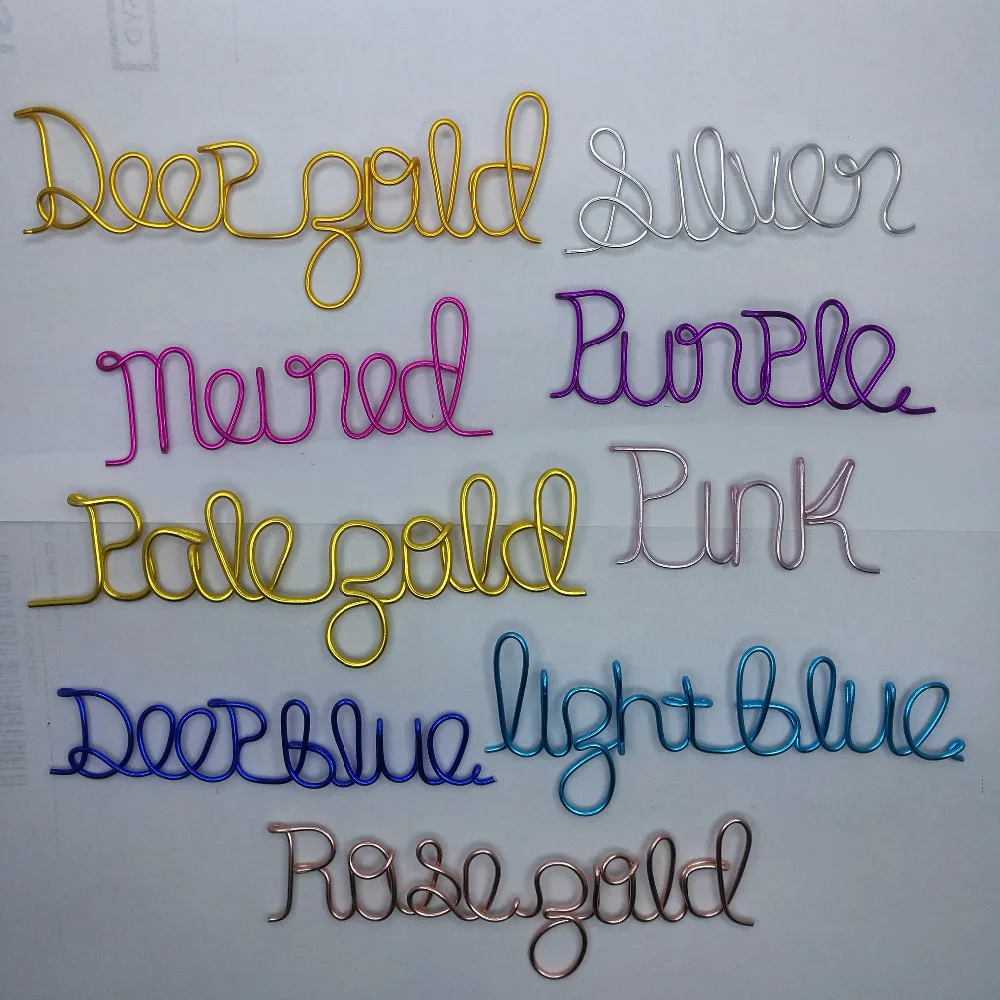 Deep gold
Silver
Meired
Purple
Pale gold
Pink
Deep blue
light blue
Rose gold